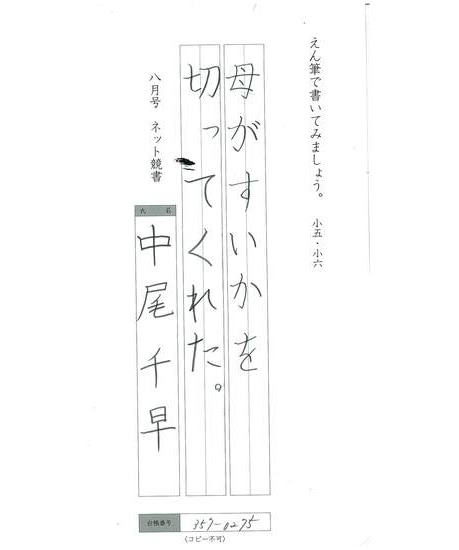 えん筆で書いてみましょう。 小五・小六
母がすいかを
切ってくれた。
八月号 ネット競書
氏名
中尾千早
台帳番号 357-0275
(コピー不可)